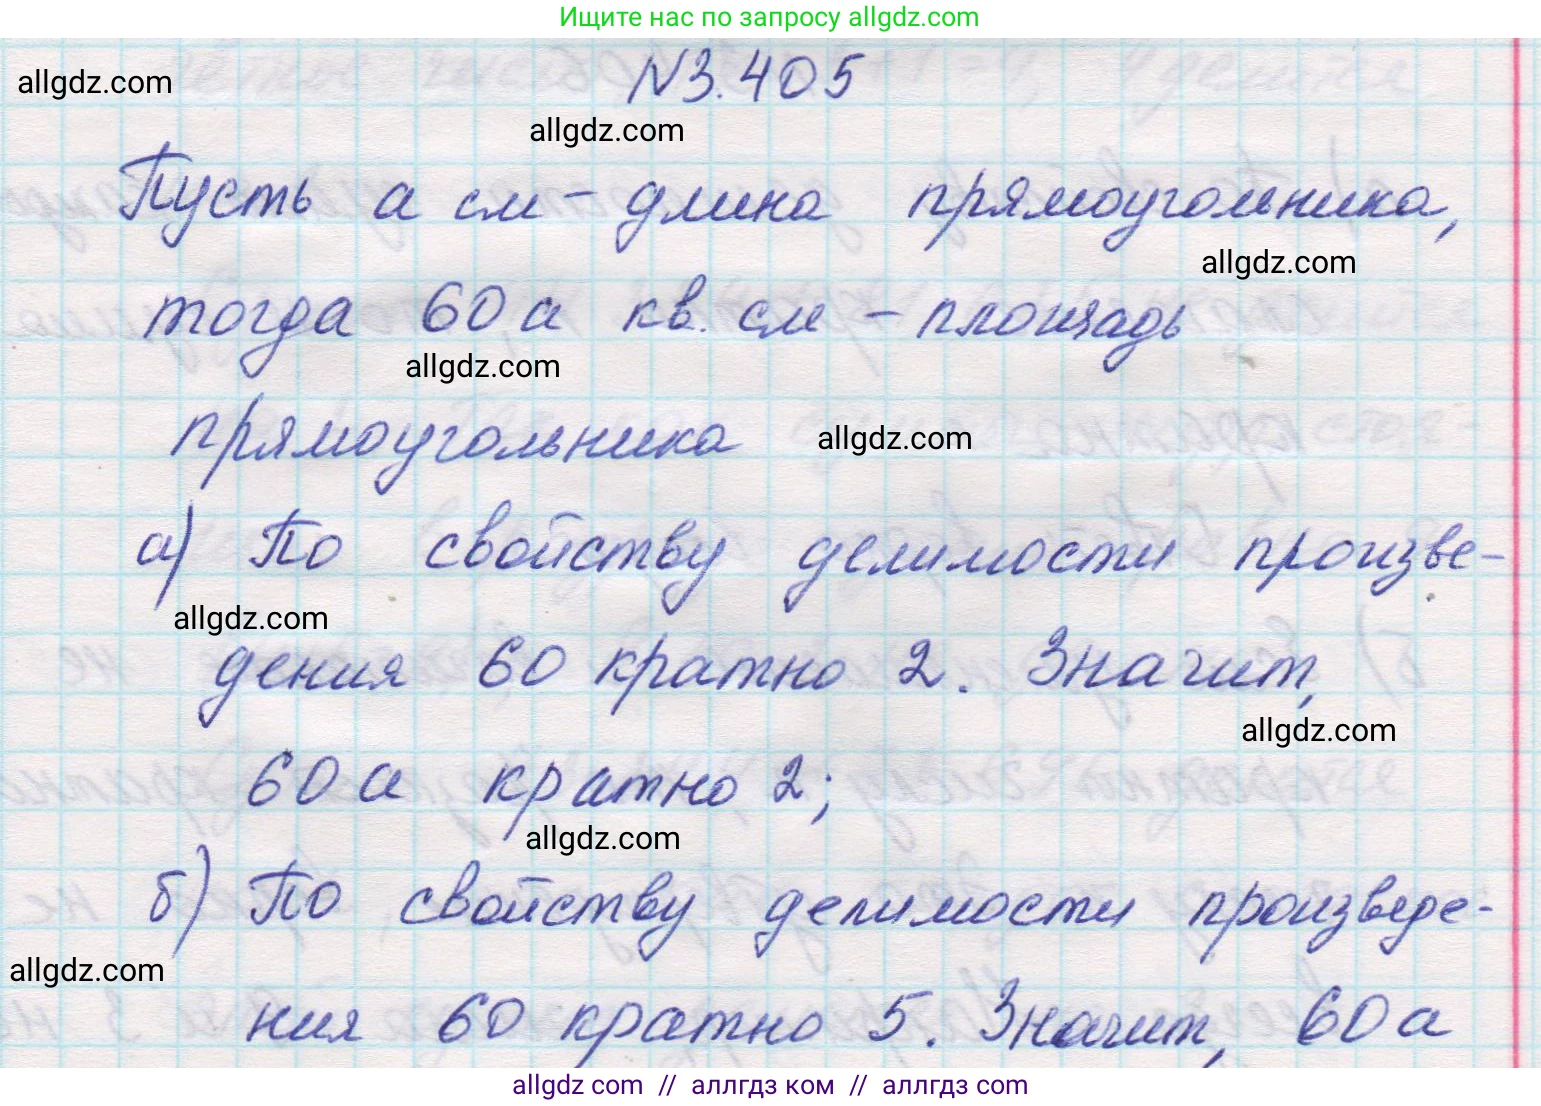 Ищите нас по запросу allgdz.com
№3.405
allgdz.com
allgdz.com
Пусть а см – длина прямоугольника,
allgdz.com
тогда 60а кв. см – площадь
allgdz.com
прямоугольника
allgdz.com
а) По свойству делимости произве-
allgdz.com
дения 60 кратно 2. Значит,
allgdz.com
60а кратно 2;
allgdz.com
б) По свойству делимости произведе-
allgdz.com
ния 60 кратно 5. Значит, 60а
allgdz com // аллгдз ком // аллгдз com